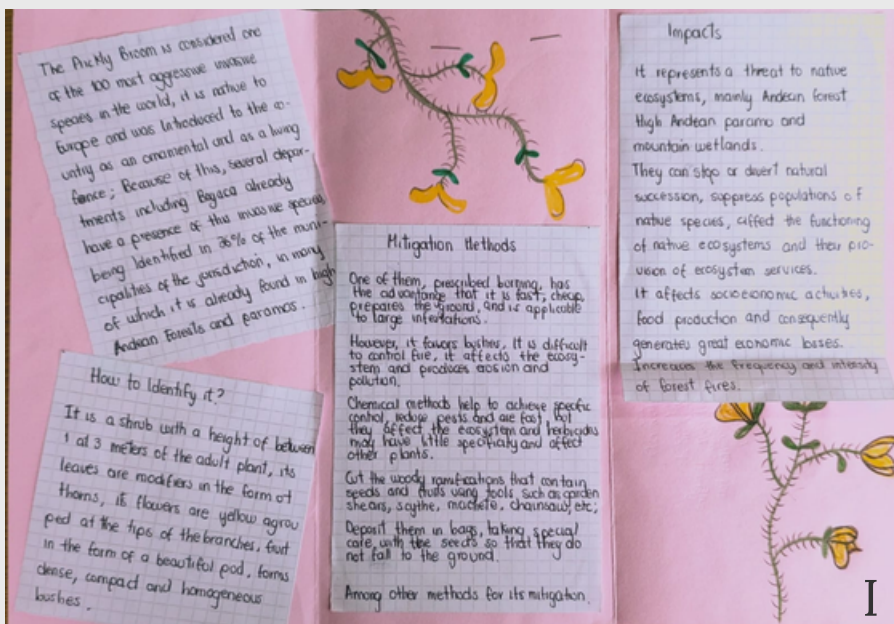 The Prickly Broom is considered one
of the 100 most aggressive invasive
species in the world, it is native to
Europe and was Introduced to the co-
untry as an ornamental and as a living
fence; Because of this, several depar-
tments including Boyaca already
have a presence of this invasive species
being Identified in 36% of the muni-
cipalities of the jurisdiction, in many
of which it is already found in high
Andean Forests and paramos.
How to Identify it?
It is a shrub with a height of between
1 at 3 meters of the adult plant, its
leaves are modifiers in the form of
thorns, its flowers are yellow agrou
ped at the tips of the branches, fruit
in the form of a beautiful pod, forms
dense, compact and homogeneous
bushes.
Mitigation Methods
One of them, prescribed burning, has
the advantange that it is fast, cheap,
prepares the ground, and is applicable
to large infestations.
However, it favors bushes. It is difficult
to control fire, it affects the ecosy-
stem and produces erosion and
pollution.
Chemical methods help to achieve specific
control, reduce pests and are fast, but
they affect the ecosystem and herbicides
may have little specificity and affect
other plants.
Cut the woody ramifications that contain
seeds and fruits using tools, such as garden
shears, scythe, machete, chainsaw, etc;
Deposit them in bags, taking special
care, with the seeds so that they do
not fall to the ground.
Among other methods for its mitigation.
Impacts
it represents a threat to native
ecosystems, mainly Andean forest
High Andean paramo and
mountain wetlands.
They can stop or divert natural
succession, suppress populations of
native species, affect the functioning
of native ecosystems and their pro-
vision of ecosystem services.
it affects socioeconomic activities,
food production and consequently
generates great economic losses.
Increases the frequency and intensity
of forest fires.
I